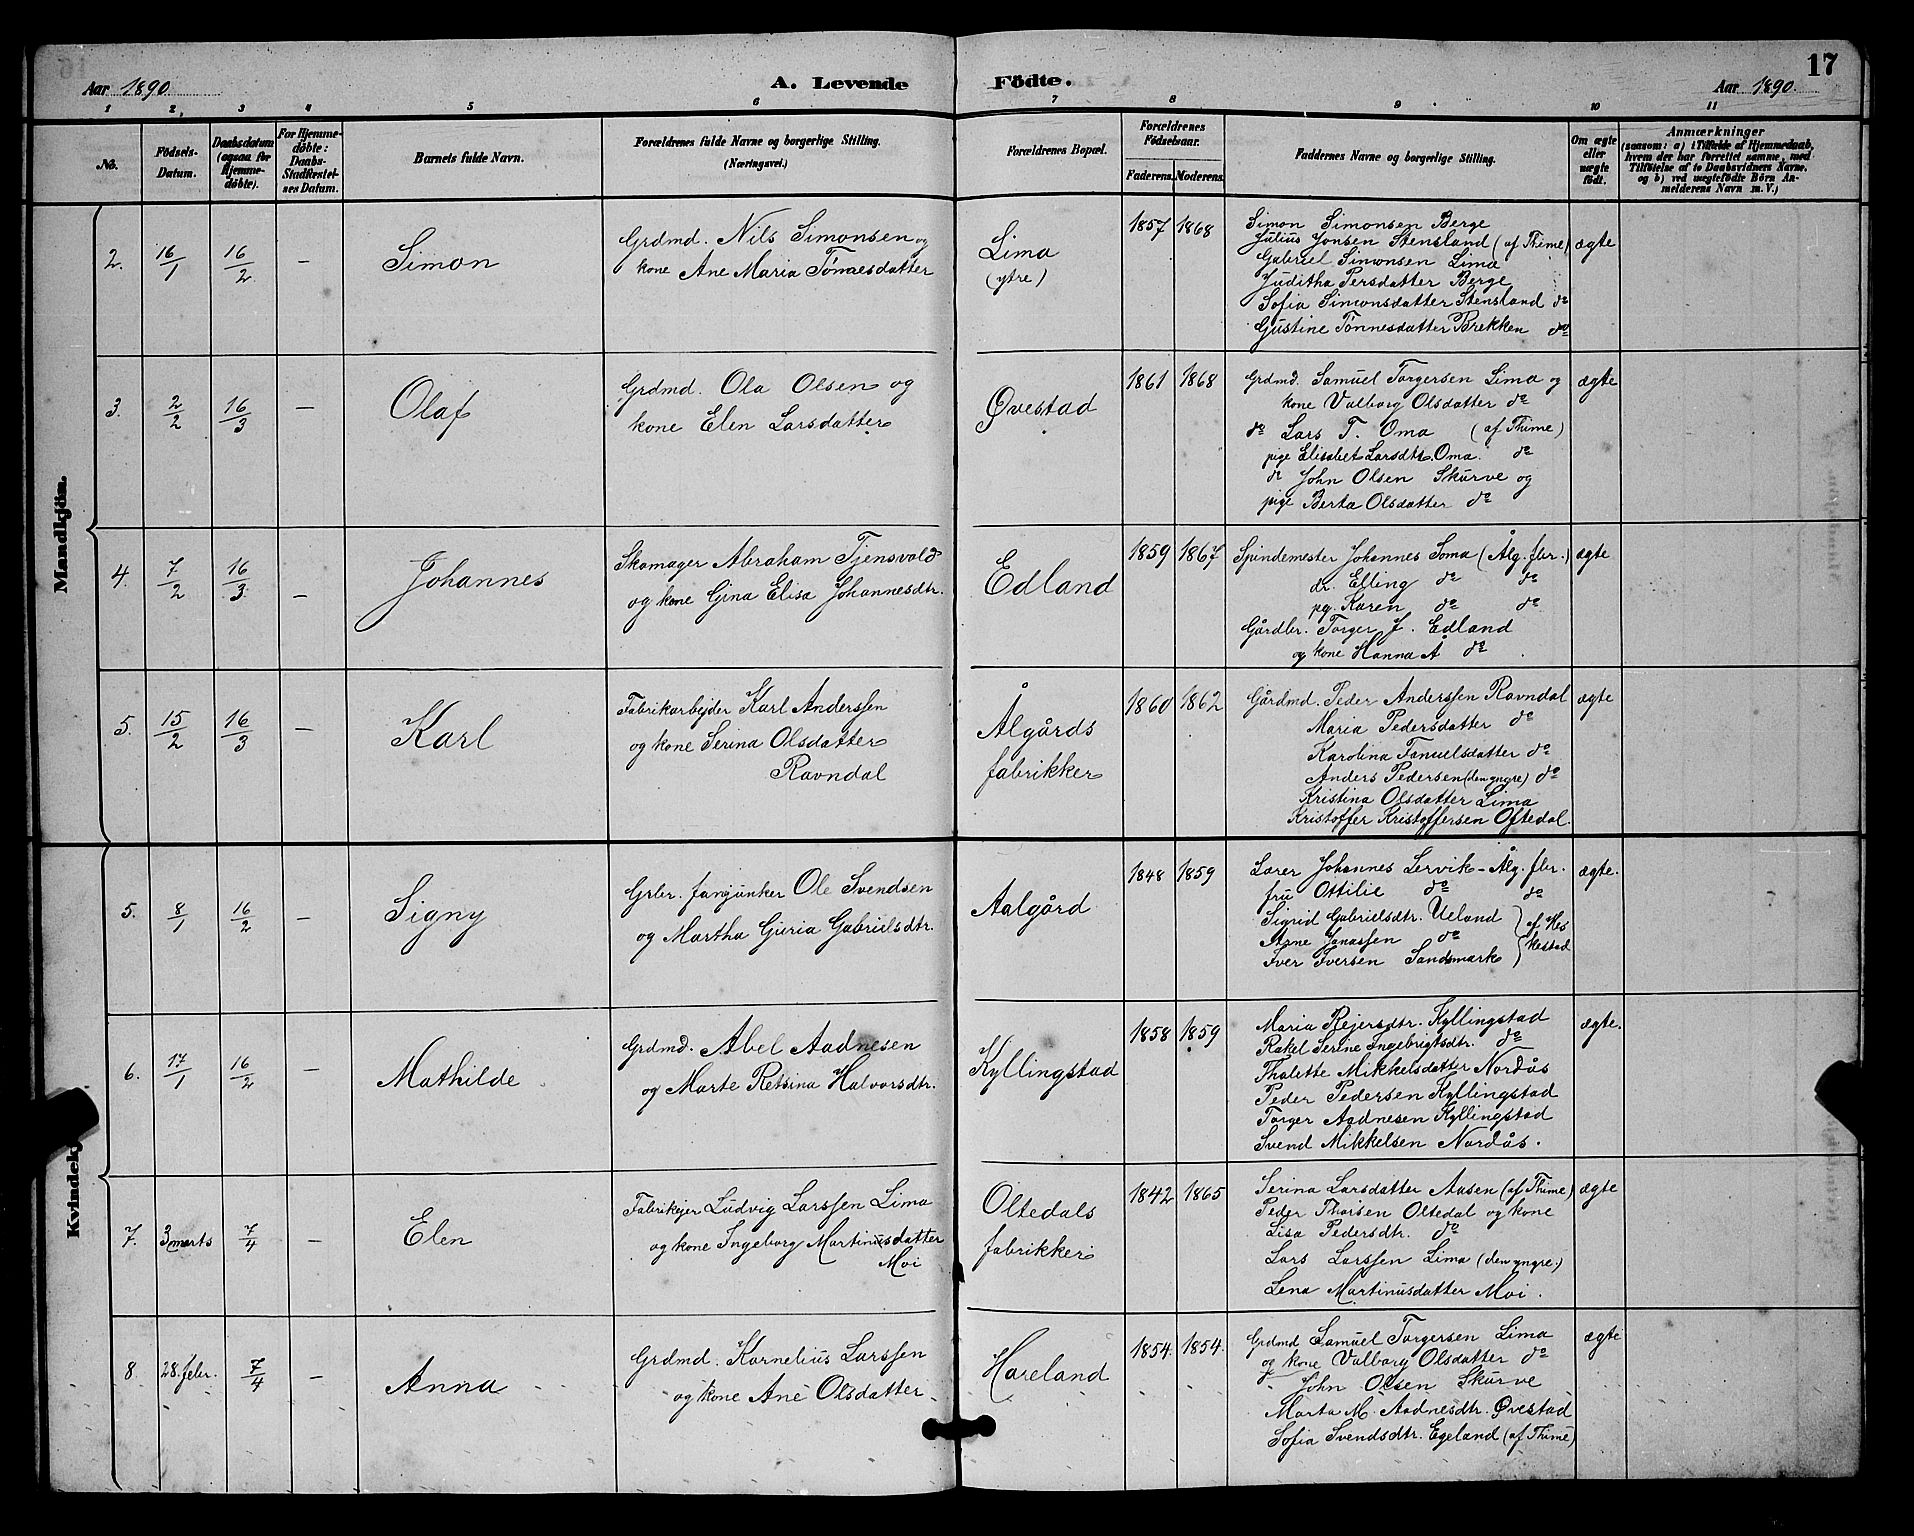 17
Aar 1890.
A. Levende Födte.
Aar 1890.
1 2, 3 4 5 6 7 8 9 10 11
No.
Födsels-
Datum.
Daabsdatum
(ogsaa for
Hjemme-
döbte).
For Hjemme-
døbte:
Daabs-
Stadfæstel-
ses Datum.
Barnets fulde Navn.
Forældrenes fulde Navne og borgerlige Stilling.
(Næringsvei.)
Forældrenes Bopæl.
Forældrenes
Födselsaar.
Faderens. Moderens.
Faddernes Navne og borgerlige Stilling.
Om ægte
eller
uægte
födt.
Anmærkninger
(saasom: a) i Tilfælde af Hjemmedaab,
hvem der har forrettet samme, med
Tilföielse af to Daabsvidners Navne,
og b) ved uægtefödte Börn An-
melderens Navn m. V.;
Mandkjön.
2. 16/1 16/2 – Simon
Grdmd. Nils Simonsen og
kone Ane Maria Tønnesdatter
Lima
(ytre)
1857 1868
Simon Simonsen Berge
Julius Jonsen Stensland (af Thime)
Gabriel Simonsen Lima
Juditha Persdatter Berge
Sofia Simonsdatter Stensland do
Gustine Tønnesdatter Brekken do
ægte
3. 2/2 16/3 – Olaf
Grdmd. Ola Olsen og
kone Elen Larsdatter
Øvestad
1861 1868
Grdmd. Samuel Torgersen Lima og
kone Valborg Olsdatter do
do Lars T. Oma (af Thime)
pige Elisabet Larsdtr. Oma. do
do John Olsen Skurve og
pige Berta Olsdatter do
ægte
4. 7/2 16/3 – Johannes
Skomager Abraham Tjensvold
og kone Gina Elisa Johannesdtr.
Edland
1859 1867
Spindemester Johannes Soma (Ålg. fbr.)
dr. Elling do do
pg. Karen do do
Gårdbr. Torger J. Edland
og kone Hanna A do
ægte
5. 15/2 16/3 – Karl
Fabrikarbejder Karl Anderssen
og kone Serina Olsdatter
Ravndal
Ålgårds
fabrikker
1860 1862
Gårdmd. Peder Anderssen Ravndal
Maria Pedersdatter do
Karolina Fanuelsdatter do
Anders Pedersen (den yngre) do
Kristina Olsdatter Lima
Kristoffer Kristoffersen Oftedal.
ægte
Kvindek
5. 8/1 16/2 – Signy
Grbr. fanjunker Ole Svendsen
og Martha Guria Gabrielsdtr.
Aalgård
1848 1859
Lærer Johannes Lervik – Ålg. fbr.
fru Ottilie do do
Sigrid Gabrielsdtr. Ueland } af Hes
Aane Janassen do kestad
Iver Iversen Sandsmark
ægte.
6. 17/1 16/2 – Mathilde
Grdmd. Abel Aadnesen
og Marte Retsina Halvorsdtr.
Kyllingstad
1858 1859
Maria Rejersdtr. Kyllingstad
Rakel Serine Ingebrigtsdtr. do
Thalette Mikkelsdatter Nordås
Peder Pedersen Kyllingstad
Torger Aadnesen Kyllingstad
Svend Mikkelsen Nordås.
ægte.
7. 3 marts 7/4 – Elen
Fabrikejer Ludvig Larssen Lima
og kone Ingeborg Martinusdatter
Moi
Oltedals
fabrikker
1842 1865
Serina Larsdatter Aasen (af Thime)
Peder Thorsen Oltedal og kone
Lisa Pedersdtr. do
Lars Larssen Lima (den yngre.)
Lena Martinusdatter Moi.
ægte
8. 28. febr. 7/4 – Anna
Grdmd. Kornelius Larssen
og kone Ane Olsdatter
Hareland
1854. 1854.
Grdmd Samuel Torgersen Lima
og kone Valborg Olsdatter do
John Olsen Skurve
Marta M. Aadnesdtr. Øvestad
Sofia Svendsdtr. Egeland (af Thime)
ægte